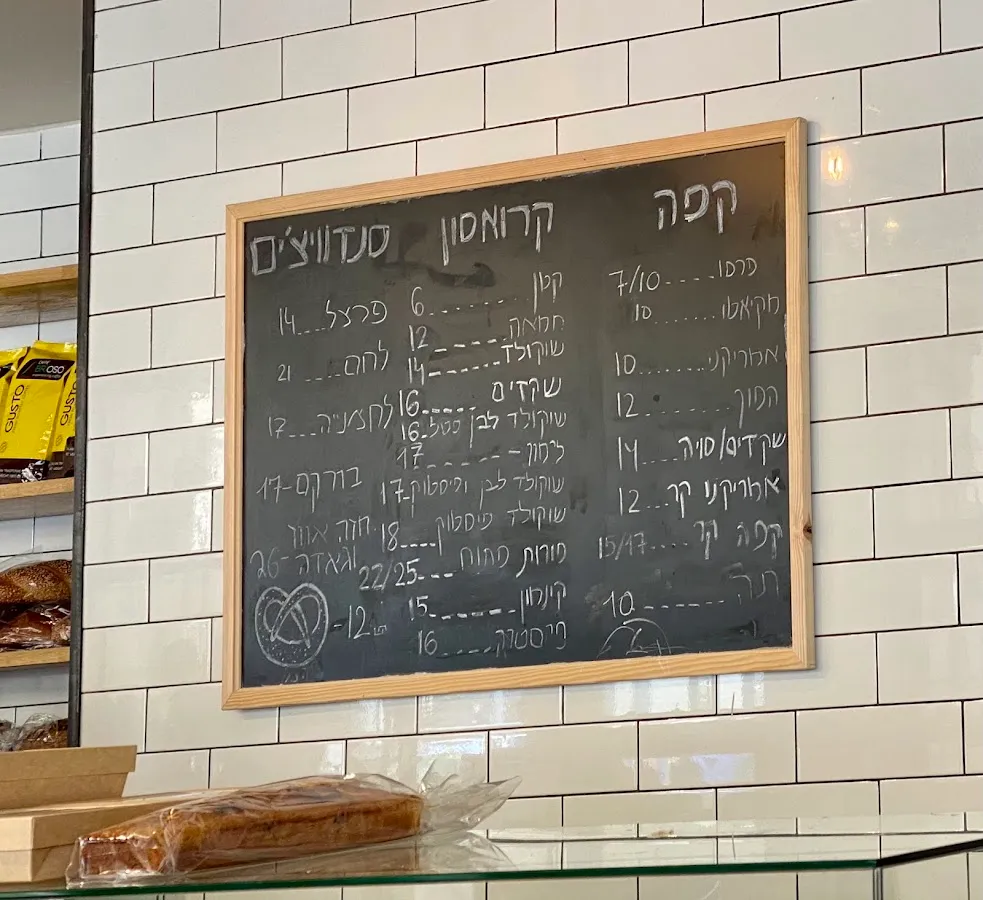 קפה
פרסו.....7/10
מקיאטו.......10
אמריקנו.......10
הפוך.........12
שקדים/סויה....14
אמריקנו קר...12
קפה קר....15/17
תה.......10
קרואסון
קטן........6
חמאה......12
שוקולד......14
שקדים.....16
שוקולד לבן 16
לימון.......17
שוקולד לבן ופיסטוק-17
שוקולד פיסטוק....18
פורות 22/25
15
פיסטוק.....16
סנדוויצ׳ים
פרצל...14
לחם....21
לחמניה...17
בורקס-17
26
12-
GUSTO
GUSTO